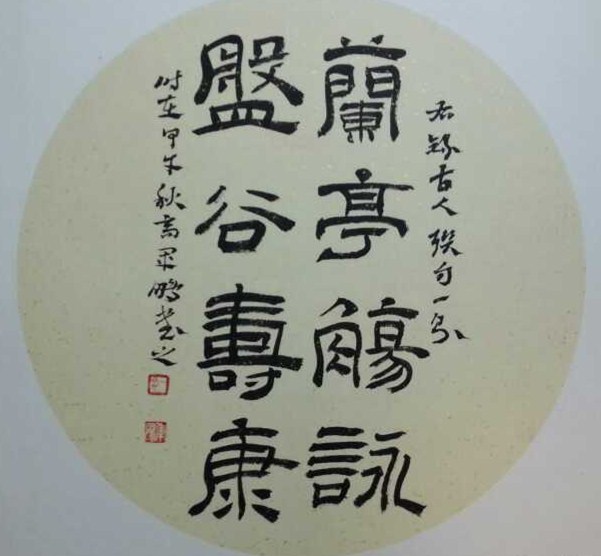 右錄古人聯句一
蘭亭觴詠
盤谷壽康
时在甲午秋高軍鵬書之